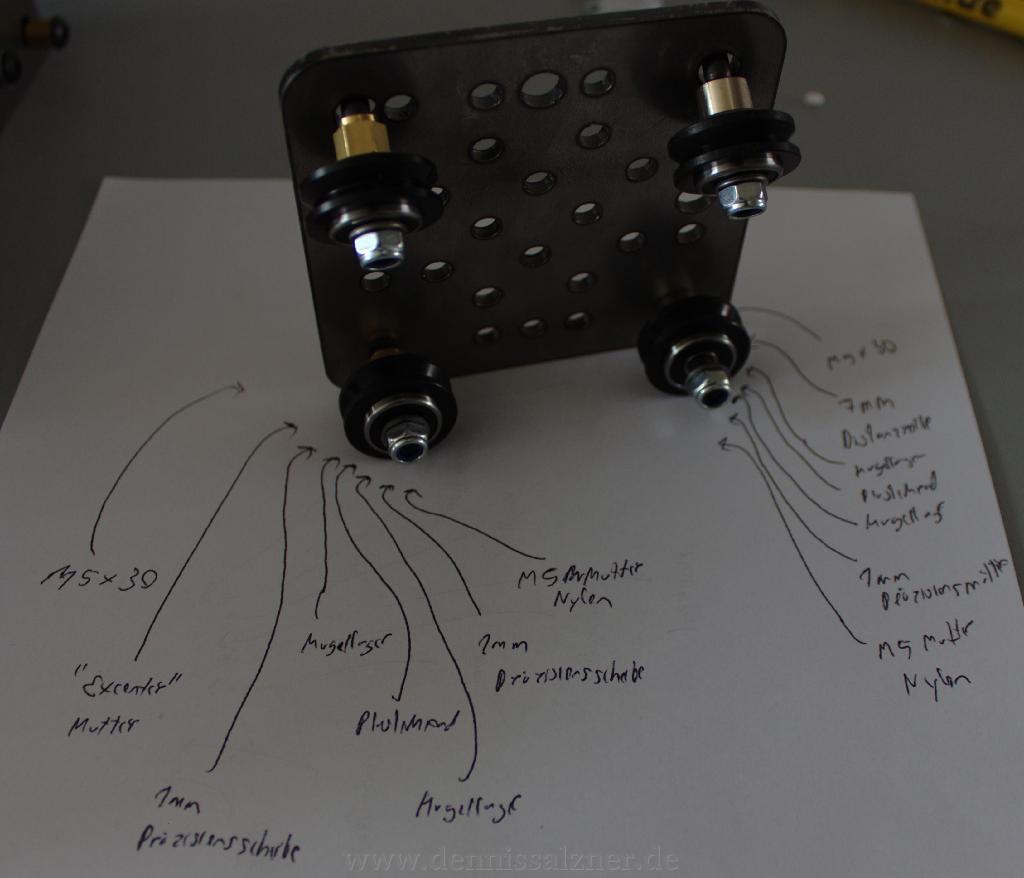 M5 x 30
"Excenter"
Mutter
1mm
Präzisionsscheibe
Kugellager
Kugellager
1mm
Präzisionsscheibe
M5 Mutter
Nylon
M5 x 30
7mm
Distanzrolle
Kugellager
Kugellag
1mm
M5 Mutter
Nylon
www.dennissalzner.de